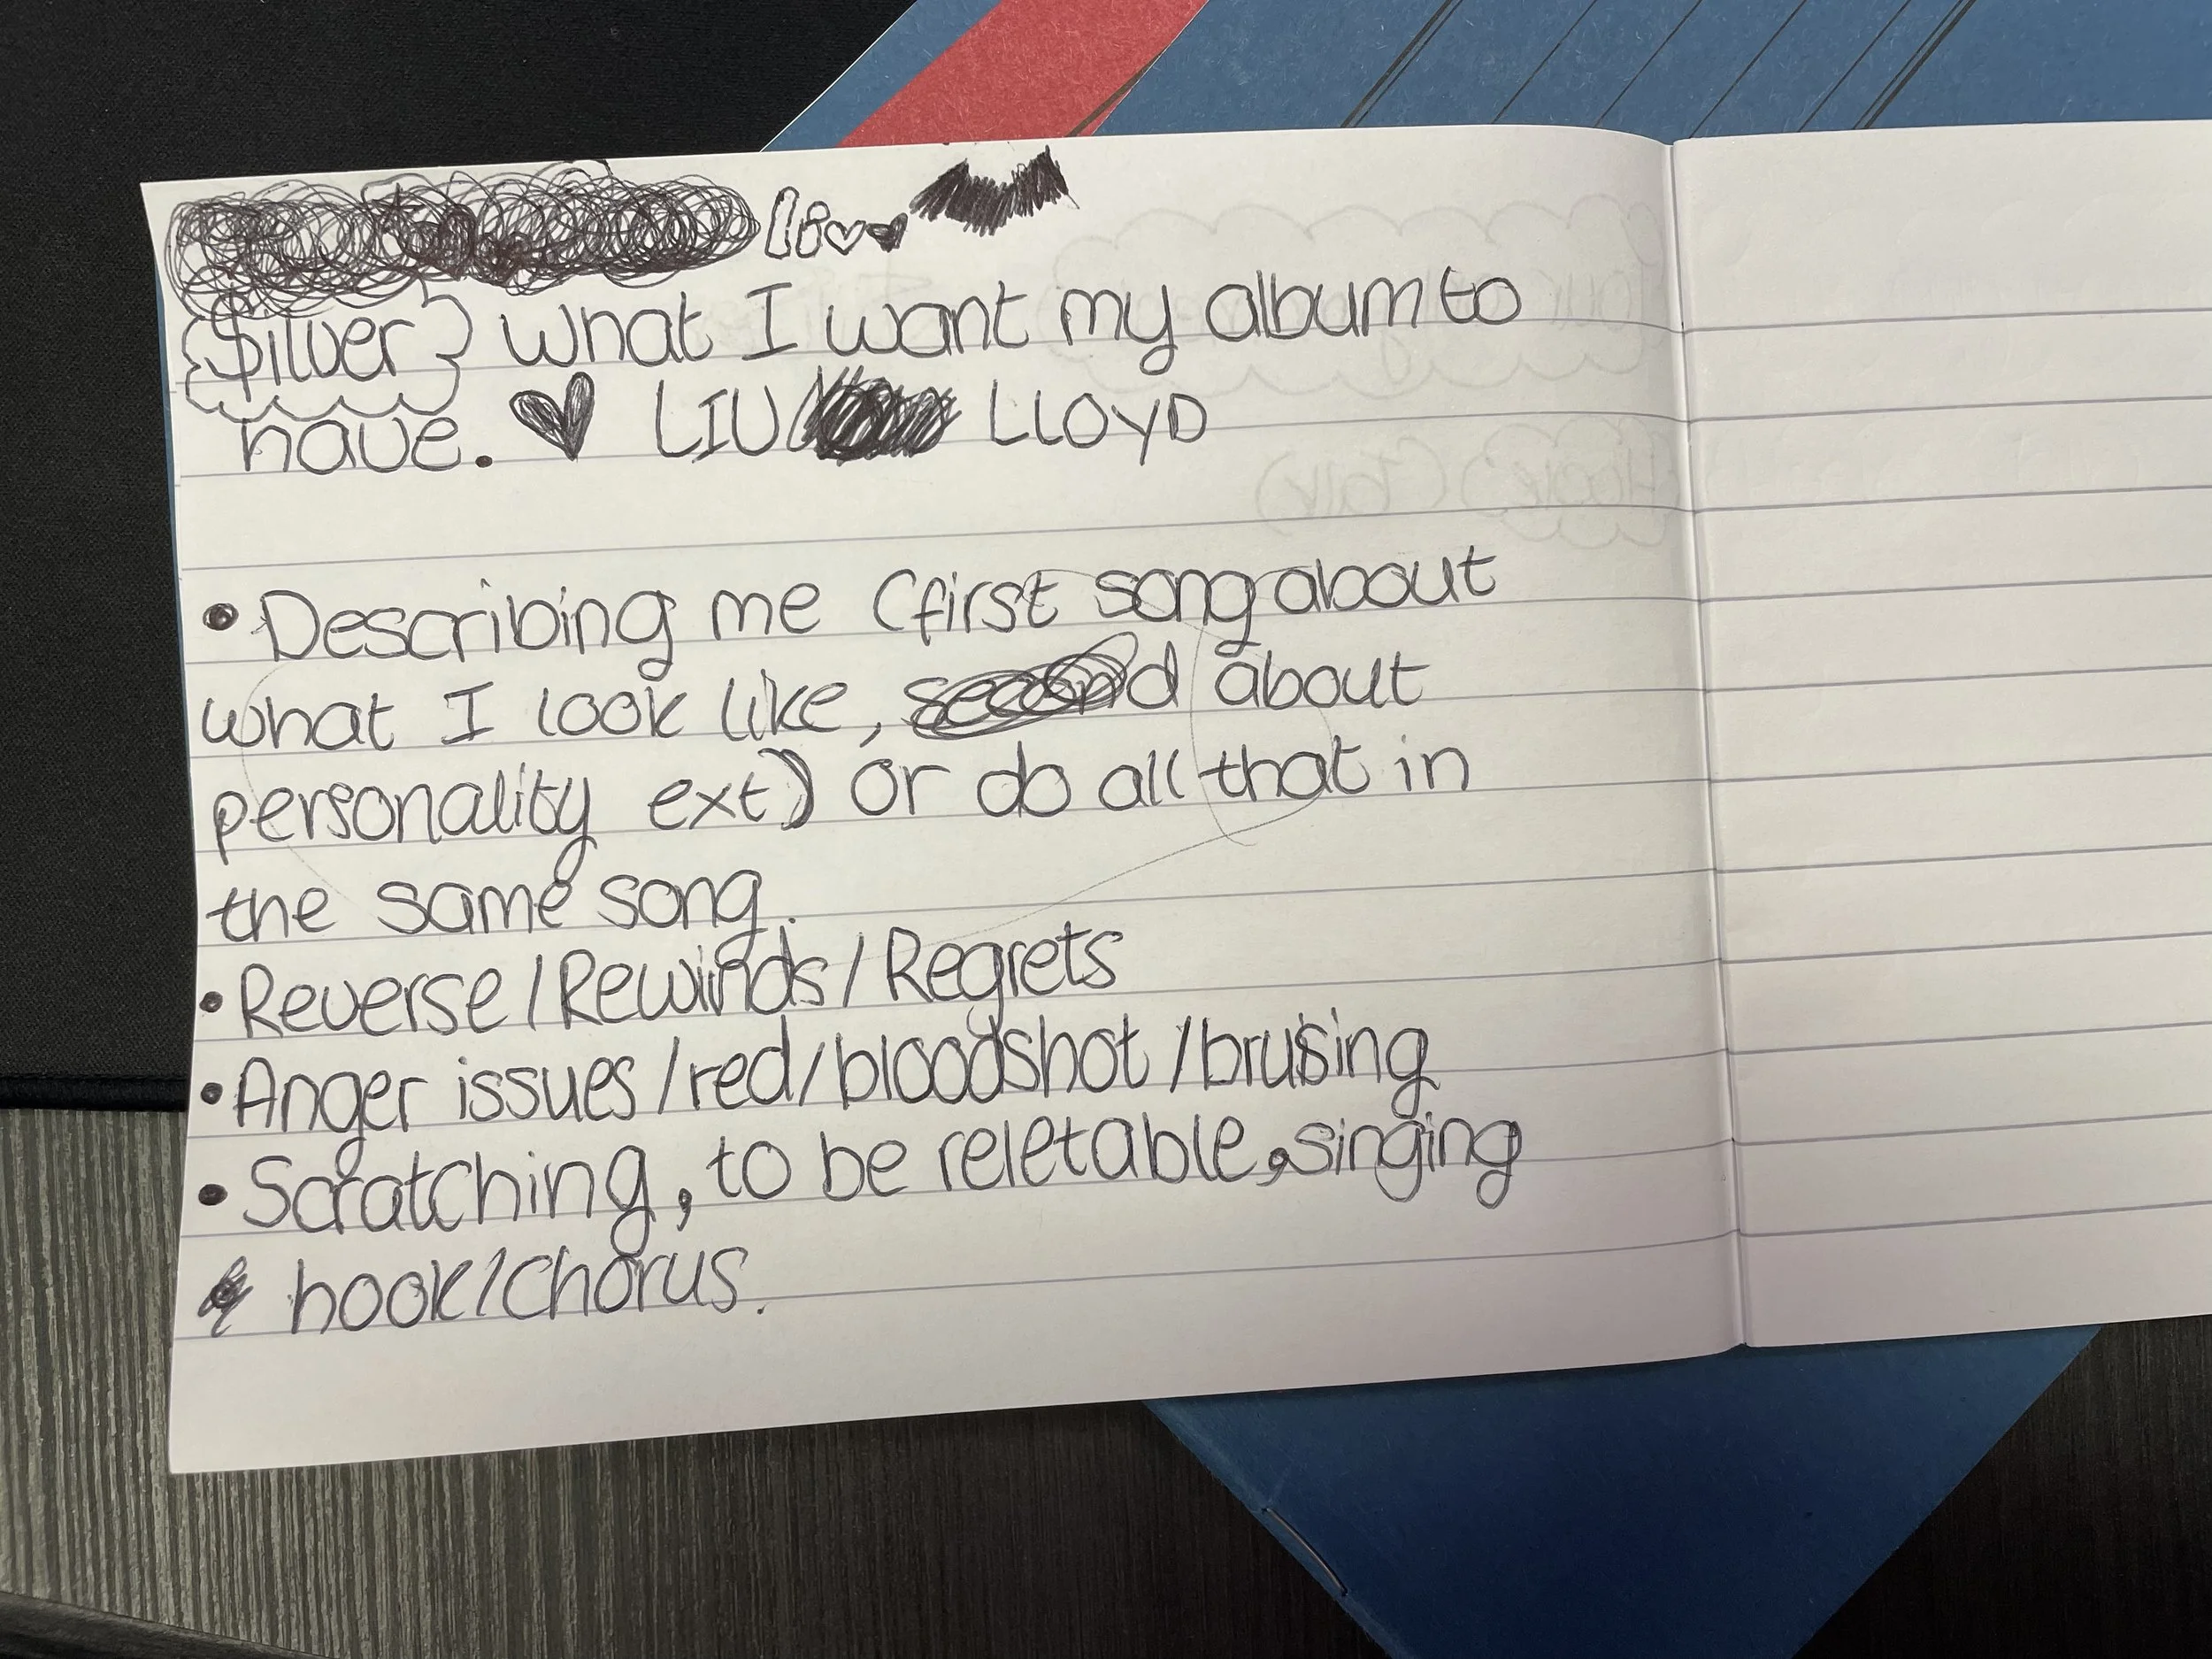 $ilver} what I want my album to
have. LIV LLOYD
• Describing me (first song about
what I look like, second about
personality ext) or do all that in
the same song.
• Reverse / Rewinds / Regrets
• Anger issues / red / bloodshot / brusing
• Scratching, to be reletable, singing
hook/chorus.